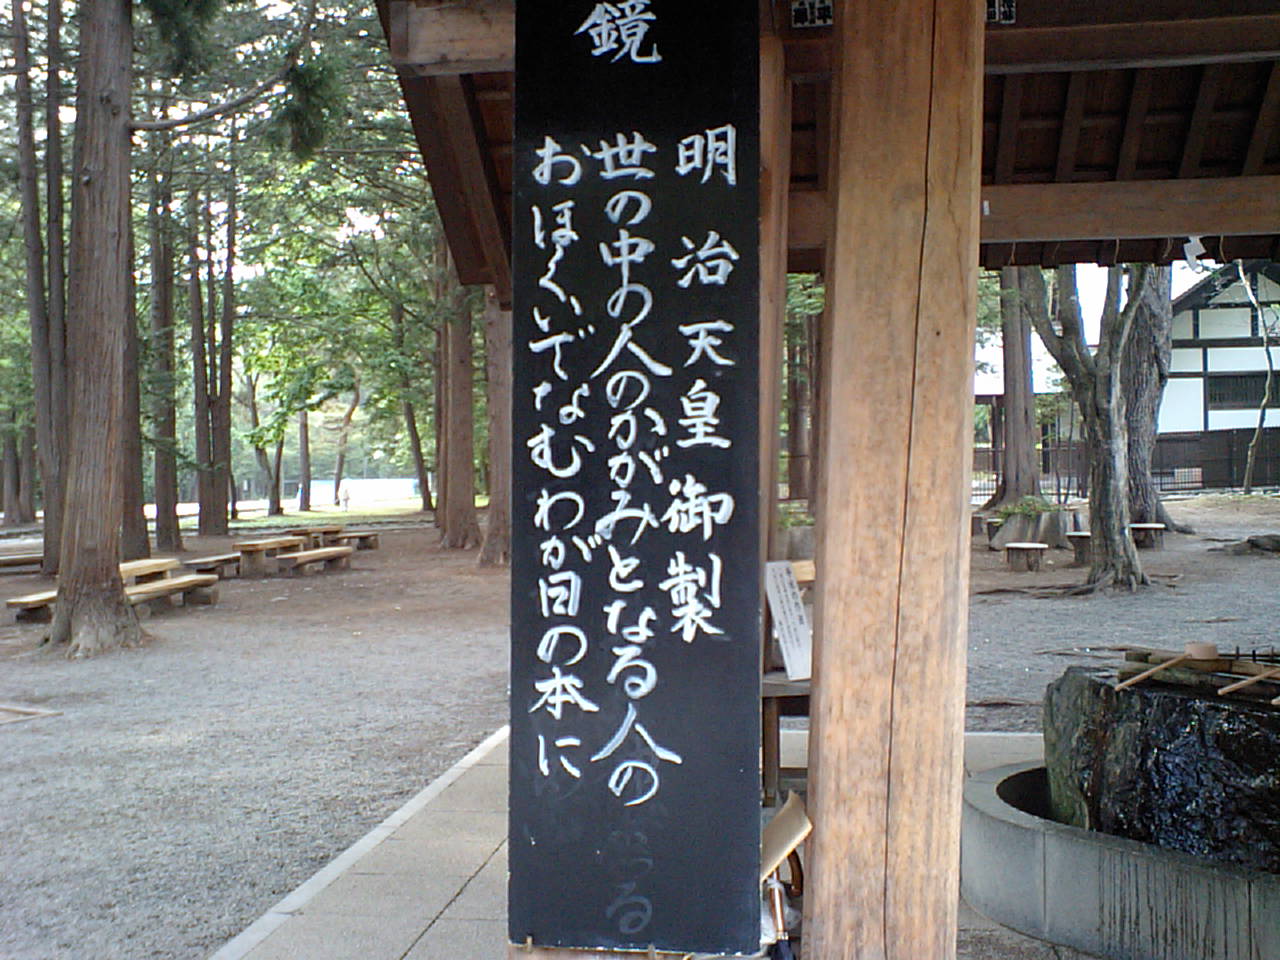 鏡
明治天皇御製
世の中の人のかがみとなる人の
おほくいでなむわが日の本に